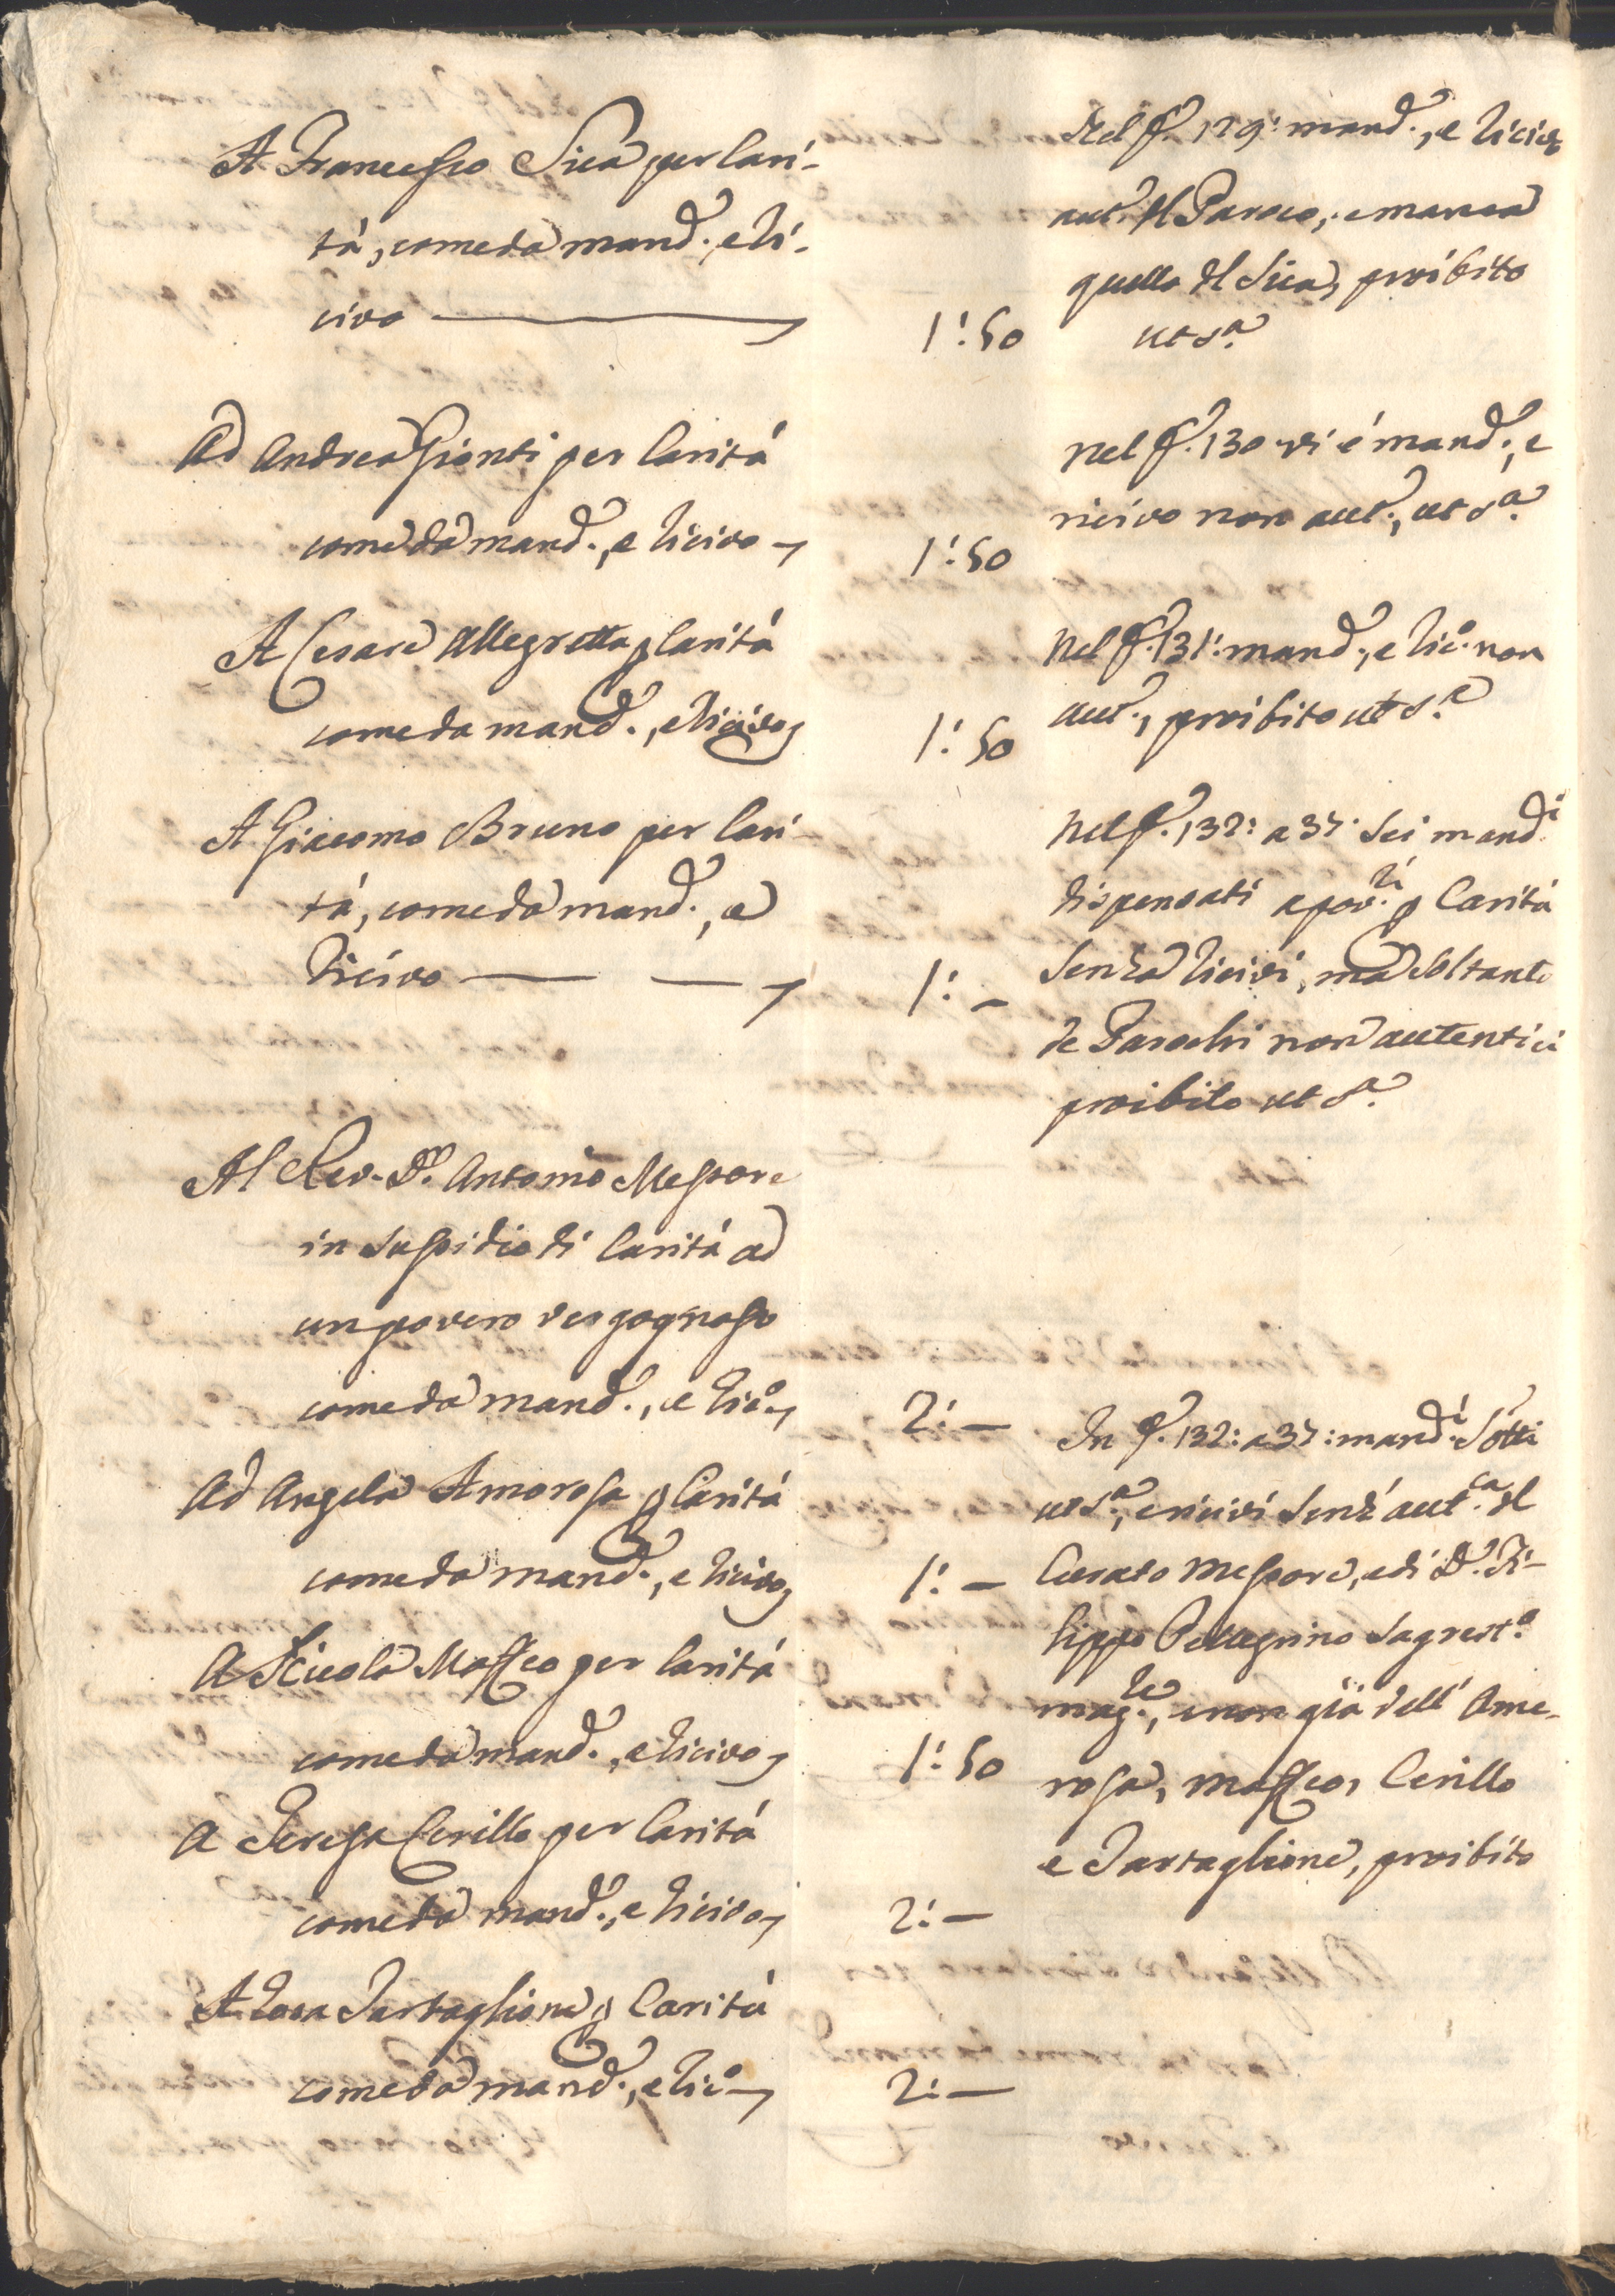 A Francesco Sica per Cari-
tà, come da mand., e Ri-
civo
1:50
Nel f. 129: mand., e Ricivo
aut. del Paroco, e manca
quello del Sica, proibito
ut s.a
Ad Andrea Gionti per Carità
come da mand., e Ricivo
1:50
Nel f. 130 vi é mand., e
ricivo non aut., ut s.a
A Cesare Allegretta p Carità
come da mand., e Ricivo
1:50
Nel f. 131: mand., e Ric.o non
aut., proibito ut s.a
A Giacomo Bruno per Cari-
tà, come da mand., e
Ricivo
1:-
Nel f. 132: a 37. Sei mand.i
dispensati a pov.ri p Carità
senza Ricivi, ma soltanto
de Parochi non autentici
proibito ut s.a
Al Rev. D. Antonio Messore
in sussidio di Carità ad
un povero vergognoso
come da mand., e Ric.o
2:-
Ad Angela Amorosa p Carità
come da mand., e Ricivo
1:-
A Nicola Maffeo per Carità
come da mand., e Ricivo
1:50
A Teresa Cerillo per Carità
come da mand., e Ricivo
2:-
A Rosa Tartaglione p Carità
come da mand., e Ric.o
2:-
In f. 132: a 37: mand.i sotti
ut s.a, e ricivi senz'aut.ca del
Curato Messore, e di D. Fi-
lippo Pellegrino Sagrest.o
mag.re, e non già dell'Amo-
rosa, Maffeo, Cerillo
e Tartaglione, proibito